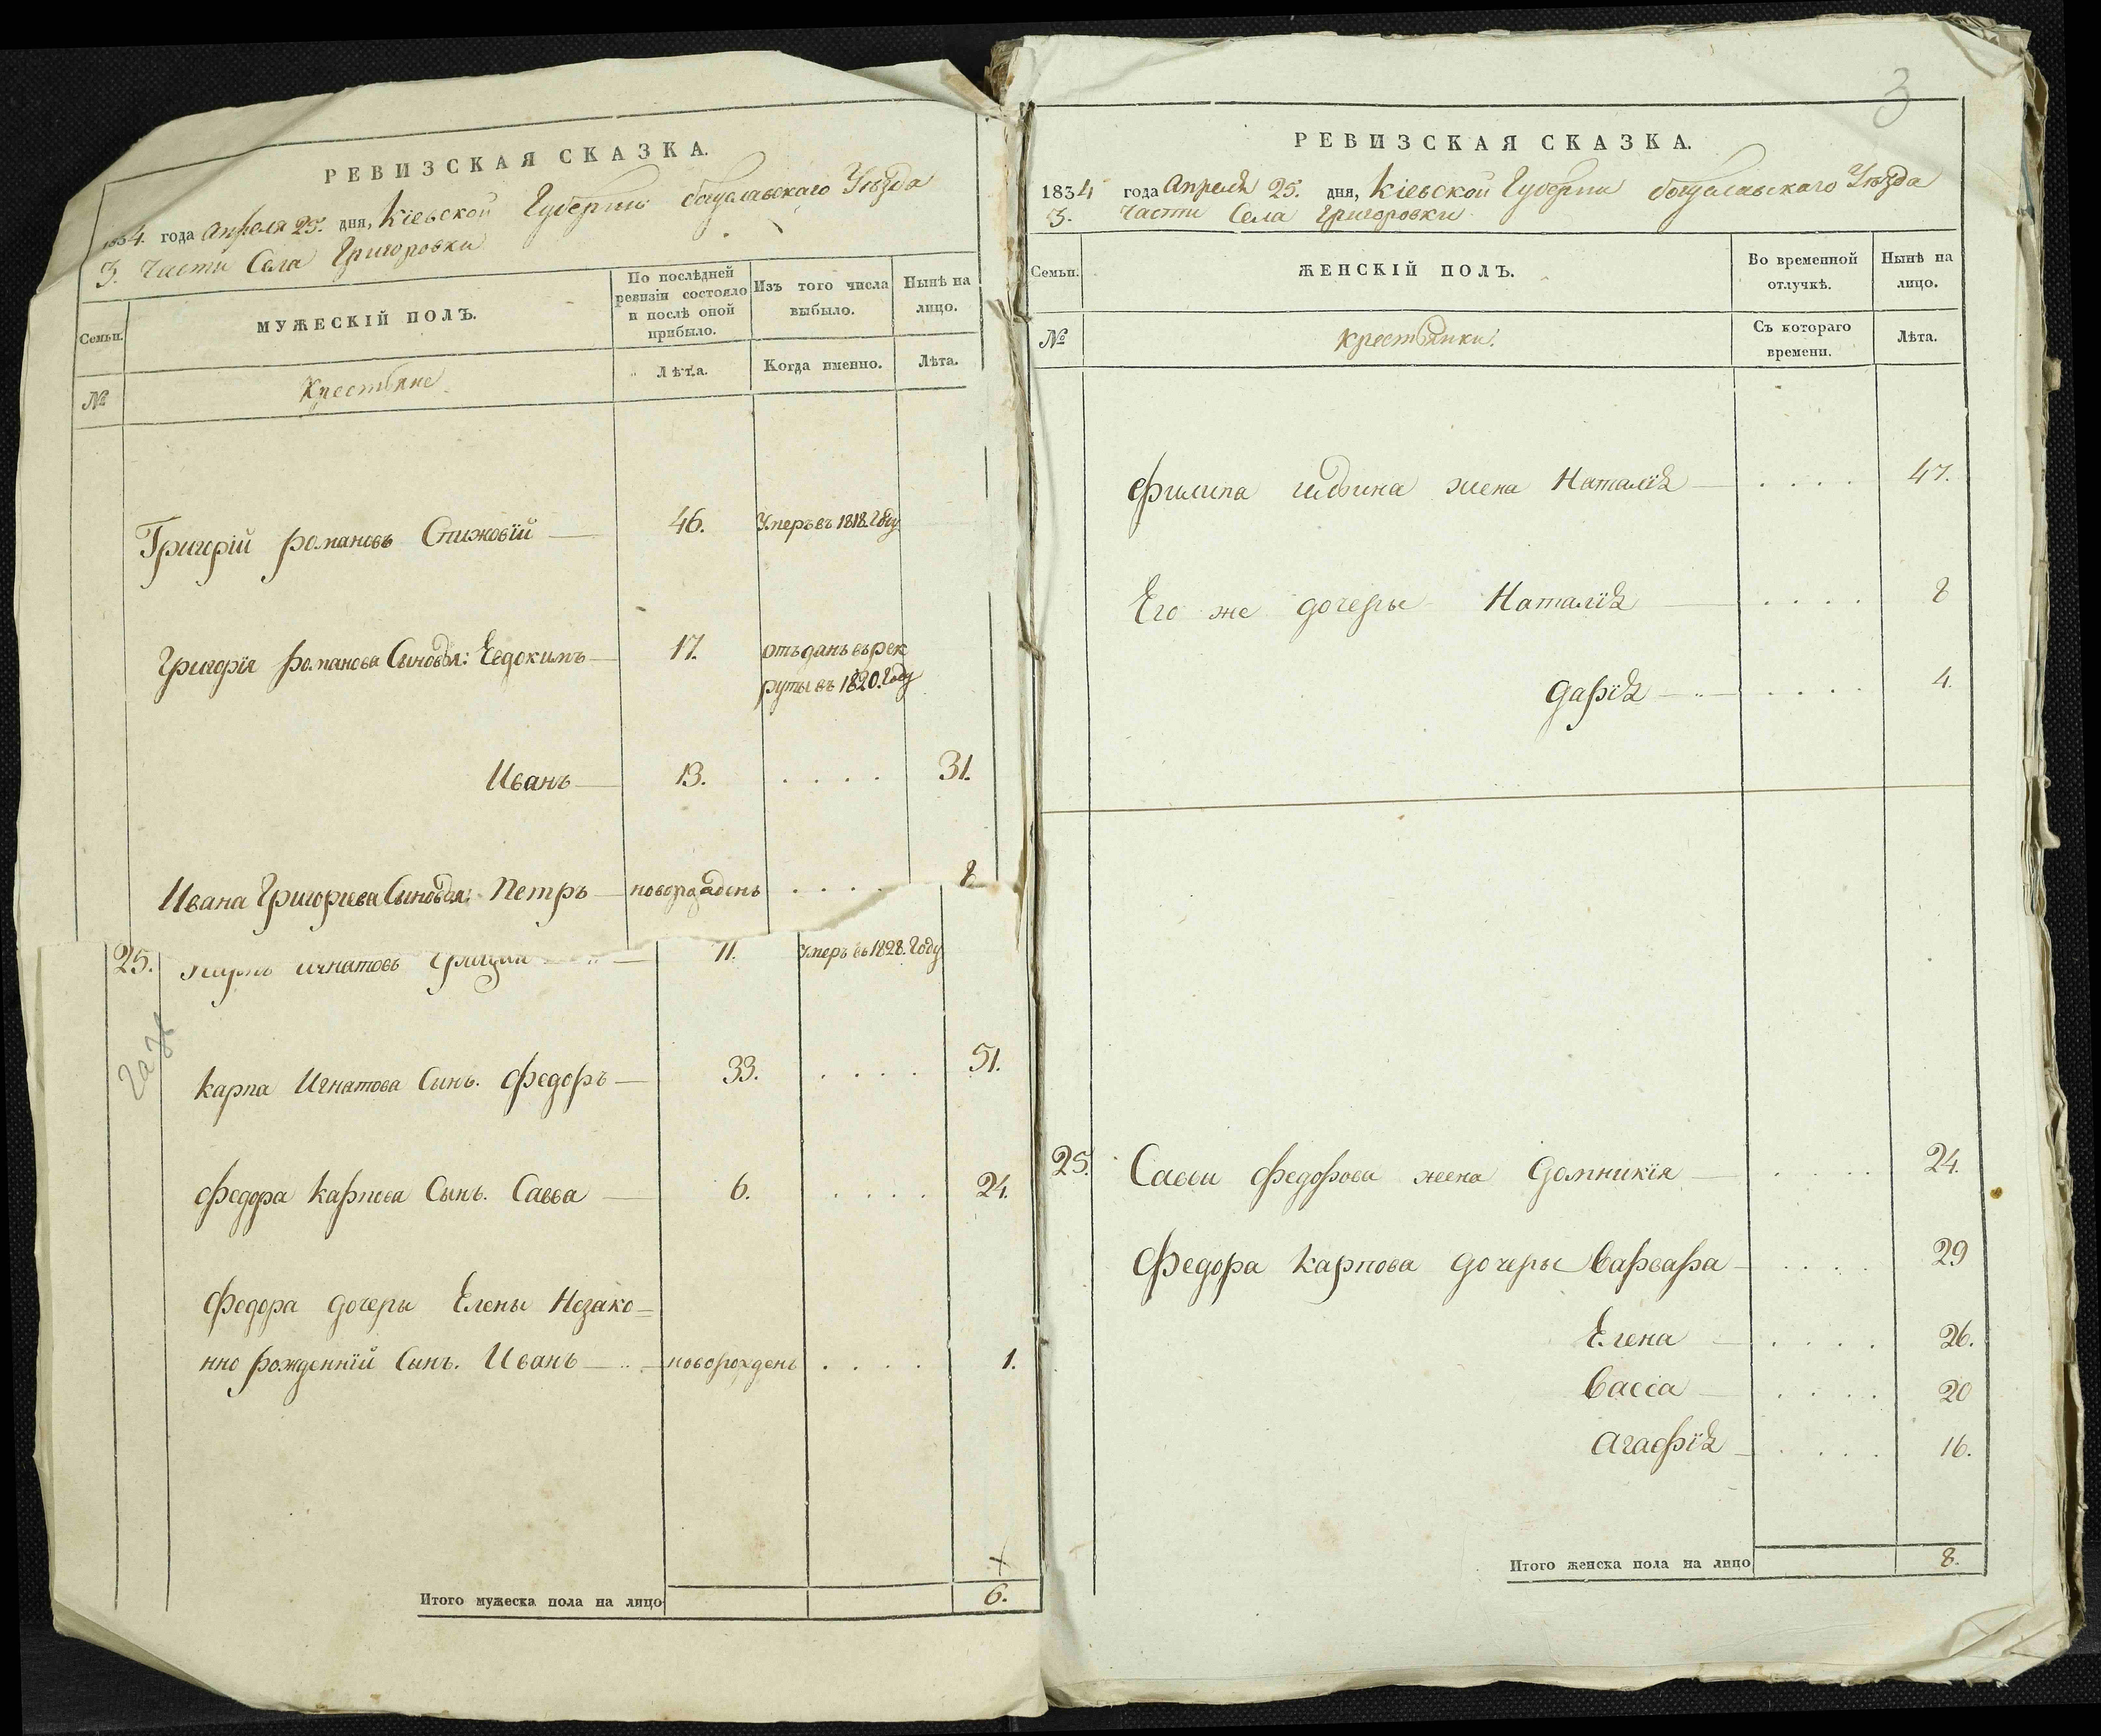 РЕВИЗСКАЯ СКАЗКА.
1834. года Апреля 25. дня, Кіевской Губерніи Богуславскаго Уѣзда
3. части Села Григоровки
Семьи.
МУЖЕСКІЙ ПОЛЪ.
По послѣдней ревизіи состояло и послѣ оной прибыло.
Изъ того числа выбыло.
Нынѣ на лицо.
№
Крестьяне
Лѣта.
Когда именно.
Лѣта.
Григорій романовъ 46. Умеръ въ 1818. Году
Григорія романова Сыновья: Евдокимъ 17. отъданъ въ рек
руты въ 1820. Году
Иванъ 13. . . . . 31.
Ивана Григорієва Сыновья: Петръ новоражденъ . . . . 8
25. игнатовъ 71. Умеръ въ 1828. Году
Карпа Игнатова Сынъ. Федоръ 33. . . . . 51.
Федора Карпова Сынъ. Савва 6. . . . . 24.
Федора дочеры Елены Незако=
нно рожденній Сынъ. Иванъ новорожденъ . . . . 1.
Итого мужеска пола на лицо 6.
3
РЕВИЗСКАЯ СКАЗКА.
1834 года Апреля 25. дня, Кіевской Губерніи Богуславскаго Уѣзда
3. части Села Григоровки
Семьи.
ЖЕНСКІЙ ПОЛЪ.
Во временной отлучкѣ.
Нынѣ на лицо.
№
Крестьянки.
Съ котораго времени.
Лѣта.
Филипа жена Наталія . . . . 47.
Его же дочеры Наталія . . . . 8
Дарія . . . . 4.
25. Савви Федорова жена Домникія . . . . 24.
Федора Карпова дочеры Варвара . . . . 29
Елена . . . . 26.
Васса . . . . 20
Агафія . . . . 16.
Итого женска пола на лицо 8.